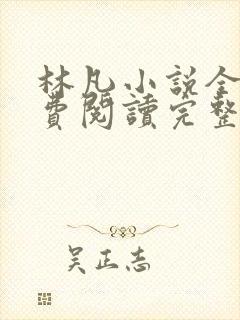 林凡小說全
費閱讀完整
吴正志